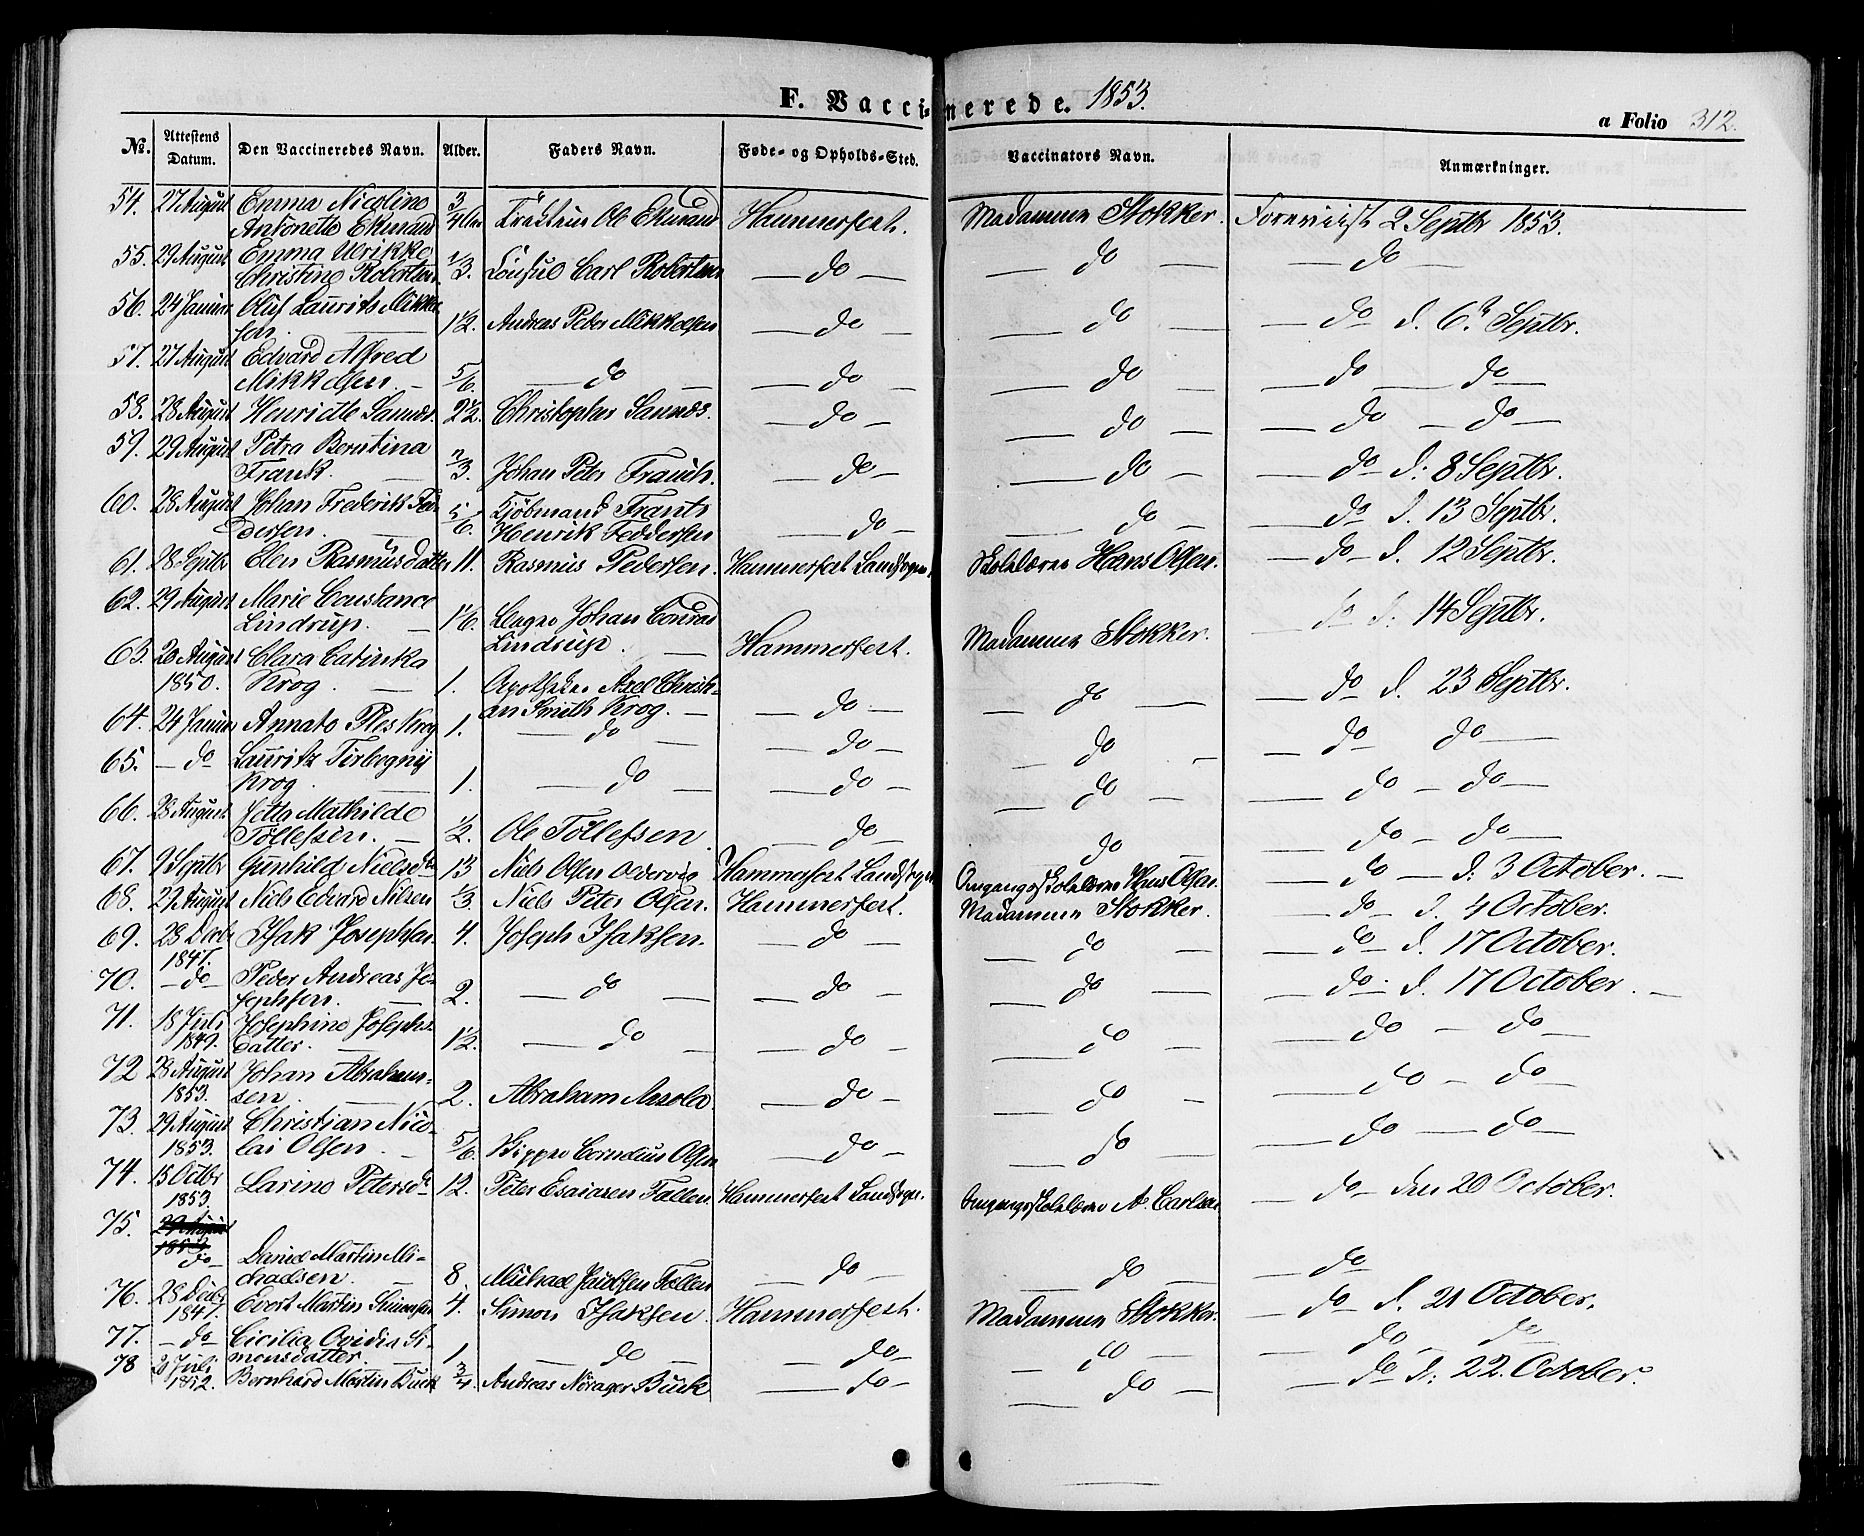 F. Vaccinerede. 1853.
a Folio 312.
No. Attestens Datum. Den Vaccineredes Navn. Alder. Faders Navn. Føde- og Opholds-Sted. Vaccinators Navn. Anmærkninger.
54. 27 August Emma Nicoline 3/4 Ole Ekmand Hammerfest. Madamme Stokker. Foreviist 2 Septbr 1853.
Antonette Ekmand
55. 29 August Emma Ulrikke
Christine Robertson 1/3. Consul Carl Robertson — do — — do — — do —
56. 24 Januar Oluf Laurits Mikkel-
sen. 1½. Andreas Peder Mikkelsen — do — — do — — do d. 6te Septbr.
57. 27 August Edvard Alfred
Mikkelsen. — 5/6. — do — — do — — do — — do — do —
58. 28 August Henriette 2½. Christopher — do — — do — — do — do —
59. 29 August Petra Berntina
Frank. 2/3. Johan Peter — do — — do — — do d. 8 Septbr.
60. 28 August Johan Frederik Fed-
dersen. 5/6. Kjöbmand Frants
Henrik Feddersen — do — — do — — do d. 13 Septbr.
61. 28 Septbr Elen Rasmusdatter 11. Rasmus Pedersen. Hammerfest Landsogn. Skolelærer Hans Olsen. — do — d. 12 Septbr.
62. 29 August Marie Constance
Lindrup. — 1/6. Johan Conrad
Lindrup. — Hammerfest. Madamme Stokker. — do d. 14 Septbr.
63. 20 August Clara Catinka
1850. Krog. — 1. Apotheker Axel Christi-
an Smith Krog. — — do — — do — — do d. 23 Septbr.
64. 24 Januar Krog 1. — do — — do — — do — do do —
65. — do Lauritz
Krog. 1. — do — — do — — do — — do — do —
66. 28 August Jetta Mathilde
Tollefsen. — ½. Ole Tollefsen. — do — do — — do — do —
67. 9 Septbr Gunhild Nielsdr 13 Niels Olsen Hammerfest Landsogn Omgangsskolelærer Hans Olsen. — do — d. 3 October. —
68. 29 August Niels Edvard Nilsen 1/3. Niels Peter Olsen. Hammerfest. Madamme Stokker. — do — d. 4 October.
69. 28 Decbr Isak Josephsen 4. Joseph Isaksen. — do — — do — — do — d. 17 October.
1847.
70. — do — Peder Andreas Jo-
sephsen. — 2. — do — — do — — do — — do — d. 17 October. —
71. 18 Juli Josephine Josephs-
1849. datter. — 1½. — do — — do — — do — — do — do —
72 28 August Johan Abraham-
1853. sen. — 2. Abraham — do — — do — — do — do —
73. 29 August Christian Nico-
1853. lai Olsen. — 5/6. Skipper Cornelius Olsen — do — — do — — do — do —
74. 15 Octbr
1853. Larine Petersdr 12. Peter Esaiasen Hammerfest Landsogn. Omgangsskolelærer A. Carlsen — do — den 20 October.
75. 29 August
1853
do — Daniel Martin Mi-
chaelsen. — 8. Michael — do — — do — — do
76. 28 Decbr Evert Martin Simonsen 4. Simon Isaksen. Hammerfest. Madamme Stokker. — do — d. 21 October.
1847.
77. — do — Cicilia Ovidia Si-
monsdatter. — 1 — do — — do — — do — — do — do
78 2 Juli Bernhard Martin Buck 3/4. Andreas Norager Buck — do — — do — — do d. 22. October.
1852.